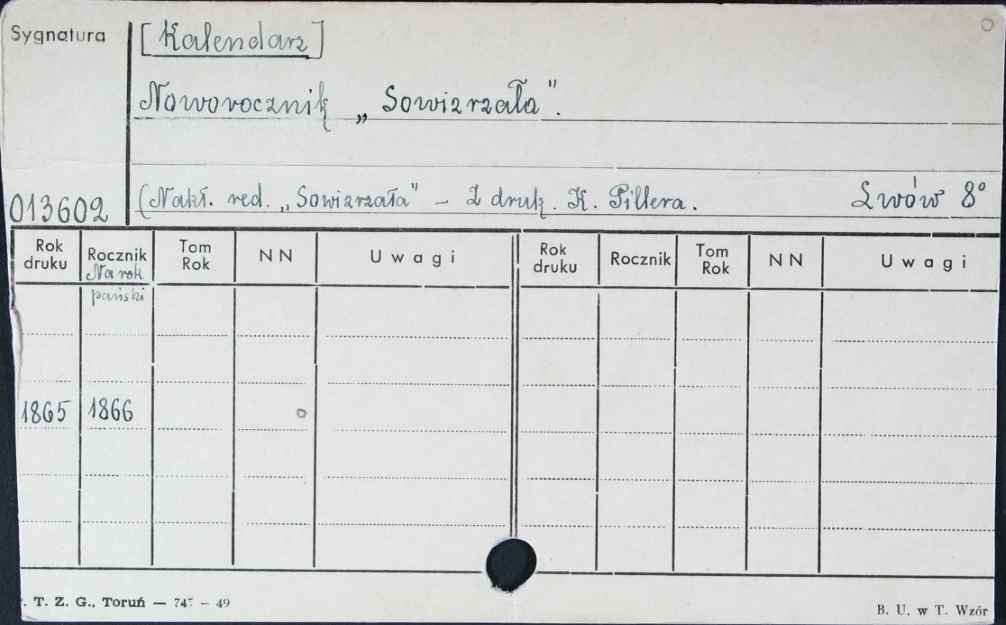 Sygnatura
[Kalendarz]
Noworocznik „Sowizrzała".
013602
(Nakł. red. „Sowizrzała" – Z druk. K. Pillera. Lwów 8°
Rok druku Rocznik Na rok pański Tom Rok NN Uwagi Rok druku Rocznik Tom Rok NN Uwagi
1865 1866
T. Z. G., Toruń — 747 – 49
B. U. w T. Wzór